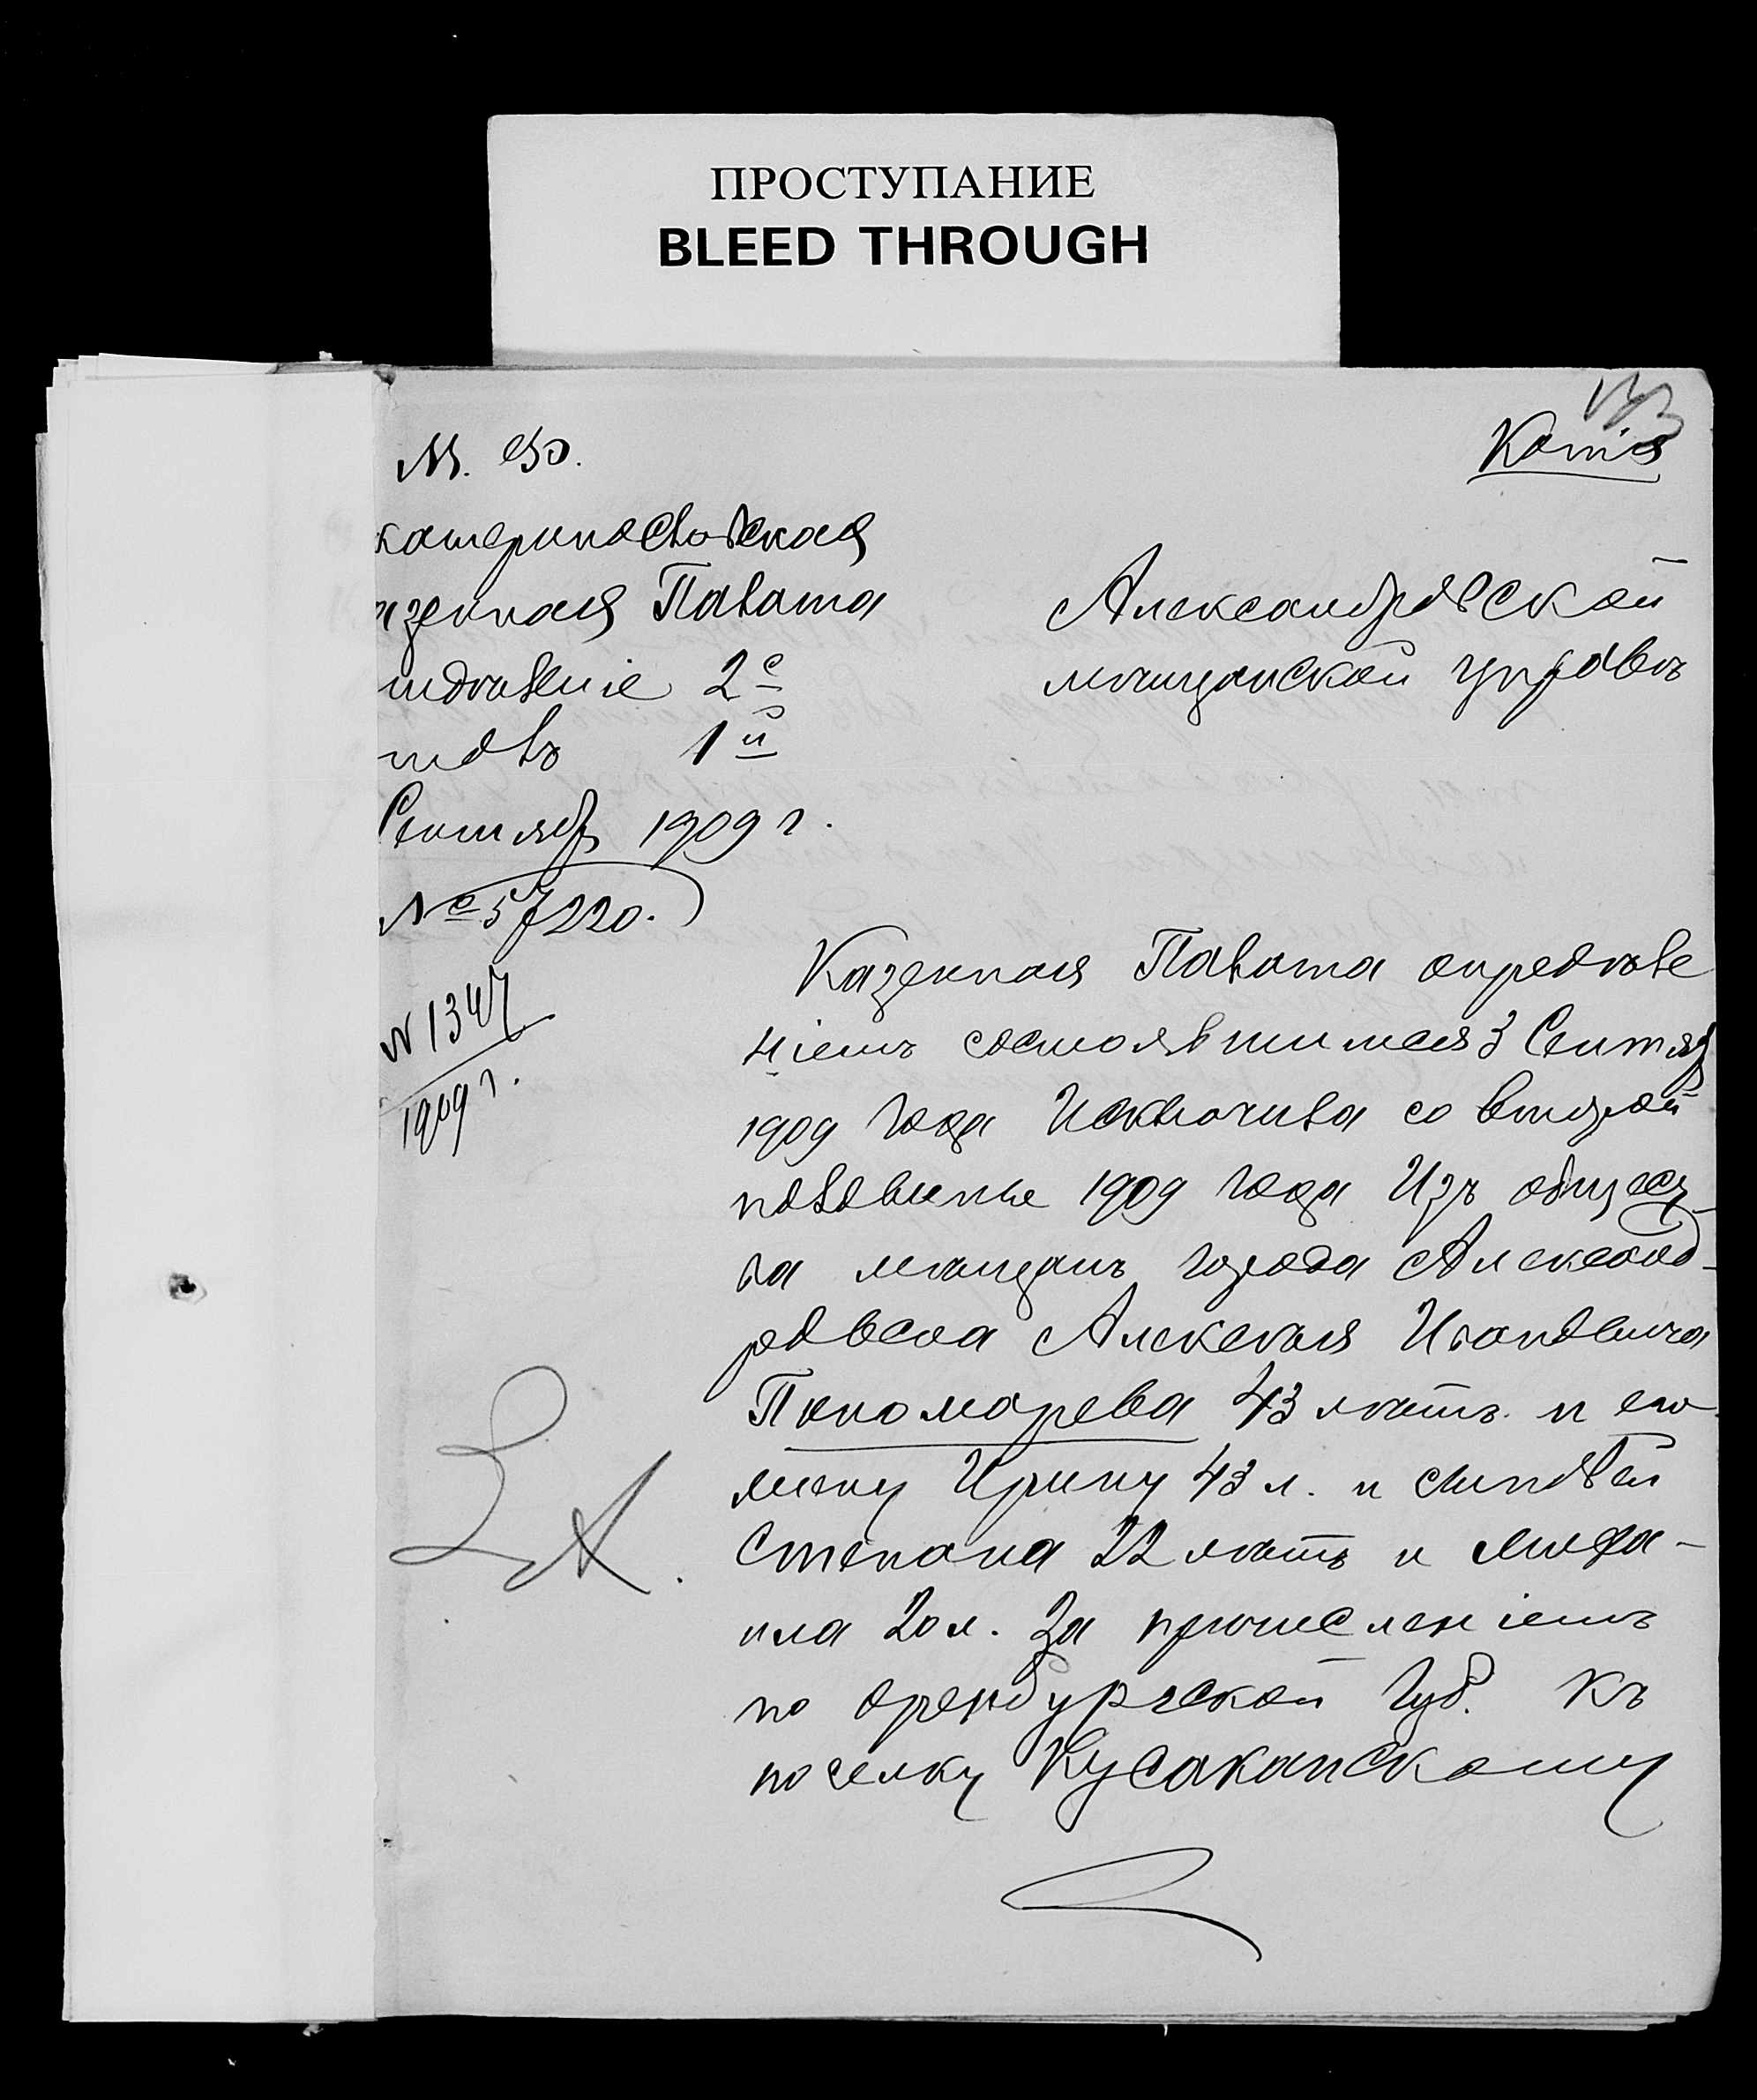 ПРОСТУПАНИЕ
BLEED THROUGH
133
Копія
М. Ф.
катеринославская
азенная Палата
тдѣленіе 2е
толъ 1й
Сентябр 1909 г.
№ 57220.
N 1347
1909 г.
Александровской
мѣщанской управѣ
Казенная Палата опредѣле
ніемъ состоявшимся 3 Сентяб
1909 года Исключила со второй
половины 1909 года Изъ общес
ва мѣщанъ города Александ-
ровска Алексѣя Ивановича
Пономарева 43 лѣтъ и его
жену Ирину 43 л. и сыновей
Степана 22 лѣтъ и Миха-
ила 20 л. За причисленіемъ
по Оренбургской Губ. Къ
поселку Кусаканскому